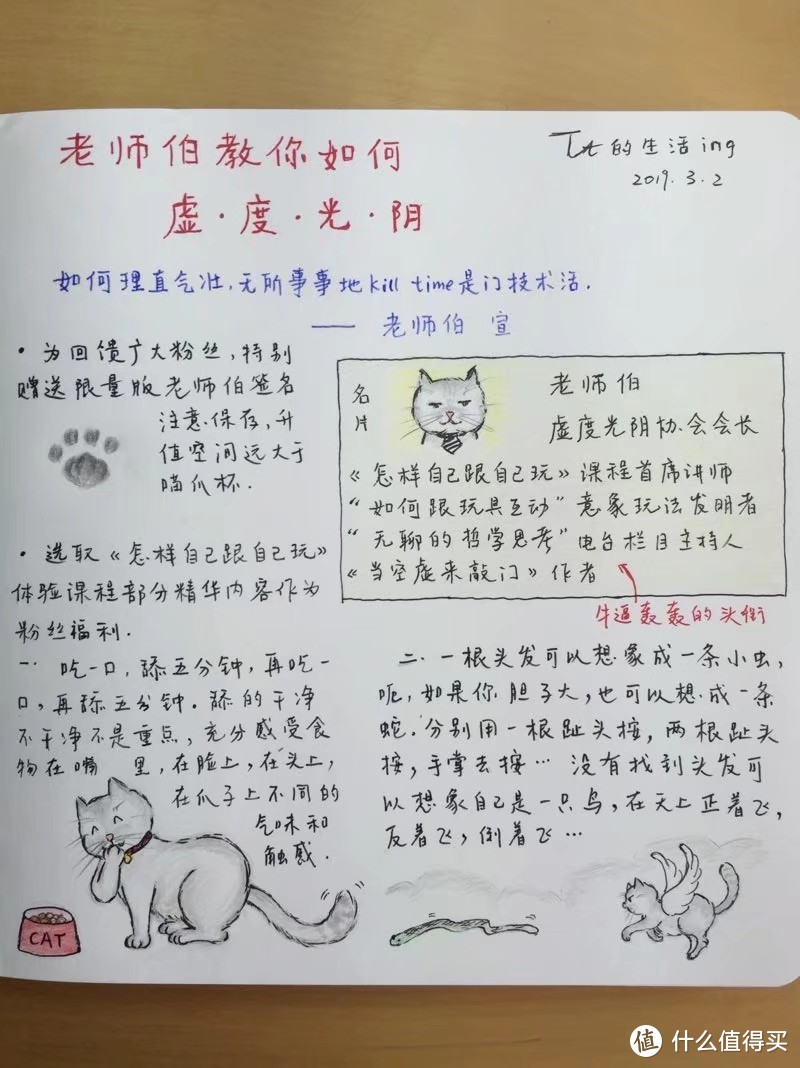 老师伯教你如何
虚·度·光·阴
的生活ing
2019.3.2
如何理直气壮,无所事事地kill time是门技术活.
—— 老师伯 宣
·为回馈广大粉丝,特别
赠送限量版老师伯签名
注意保存,升
值空间远大于
喵爪杯.
名片
老师伯
虚度光阴协会会长
《怎样自己跟自己玩》课程首席讲师
“如何跟玩具互动”意象玩法发明者
“无聊的哲学思考”电台栏目主持人
《当空虚来敲门》作者
牛逼轰轰的头衔
·选取《怎样自己跟自己玩》
体验课程部分精华内容作为
粉丝福利.
一.吃一口,舔五分钟,再吃一
口,再舔五分钟.舔的干净
不干净不是重点,充分感受食
物在嘴里,在脸上,在头上,
在爪子上不同的
气味和
触感.
CAT
二.一根头发可以想象成一条小虫,
呃,如果你胆子大,也可以想成一条
蛇.分别用一根趾头按,两根趾头
按,手掌去按…没有找到头发可
以想象自己是一只鸟,在天上正着飞,
反着飞,倒着飞…
值 什么值得买